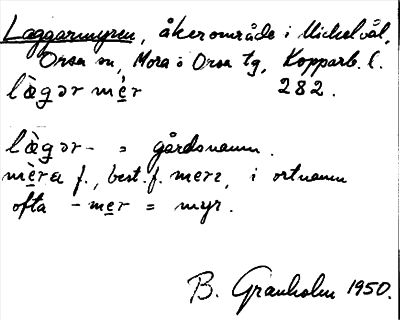 Laggarmyren, åkerområde i Mickelvål,
Orsa sn, Mora o Orsa tg, Kopparb. l.
lὰgər mér 282.
lὰgər- = gårdsnamn.
mὲra f., best. f. merɛ, i ortnamn
ofta -mer = myr.
B. Granholm 1950.